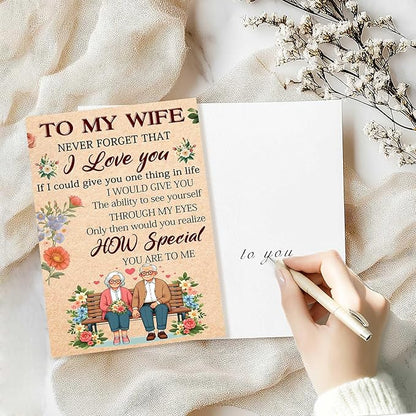 TO MY WIFE
NEVER FORGET THAT
I Love you
If I could give you one thing in life
I WOULD GIVE YOU
The ability to see yourself
THROUGH MY EYES
Only then would you realize
HOW Special
YOU ARE TO ME
to you